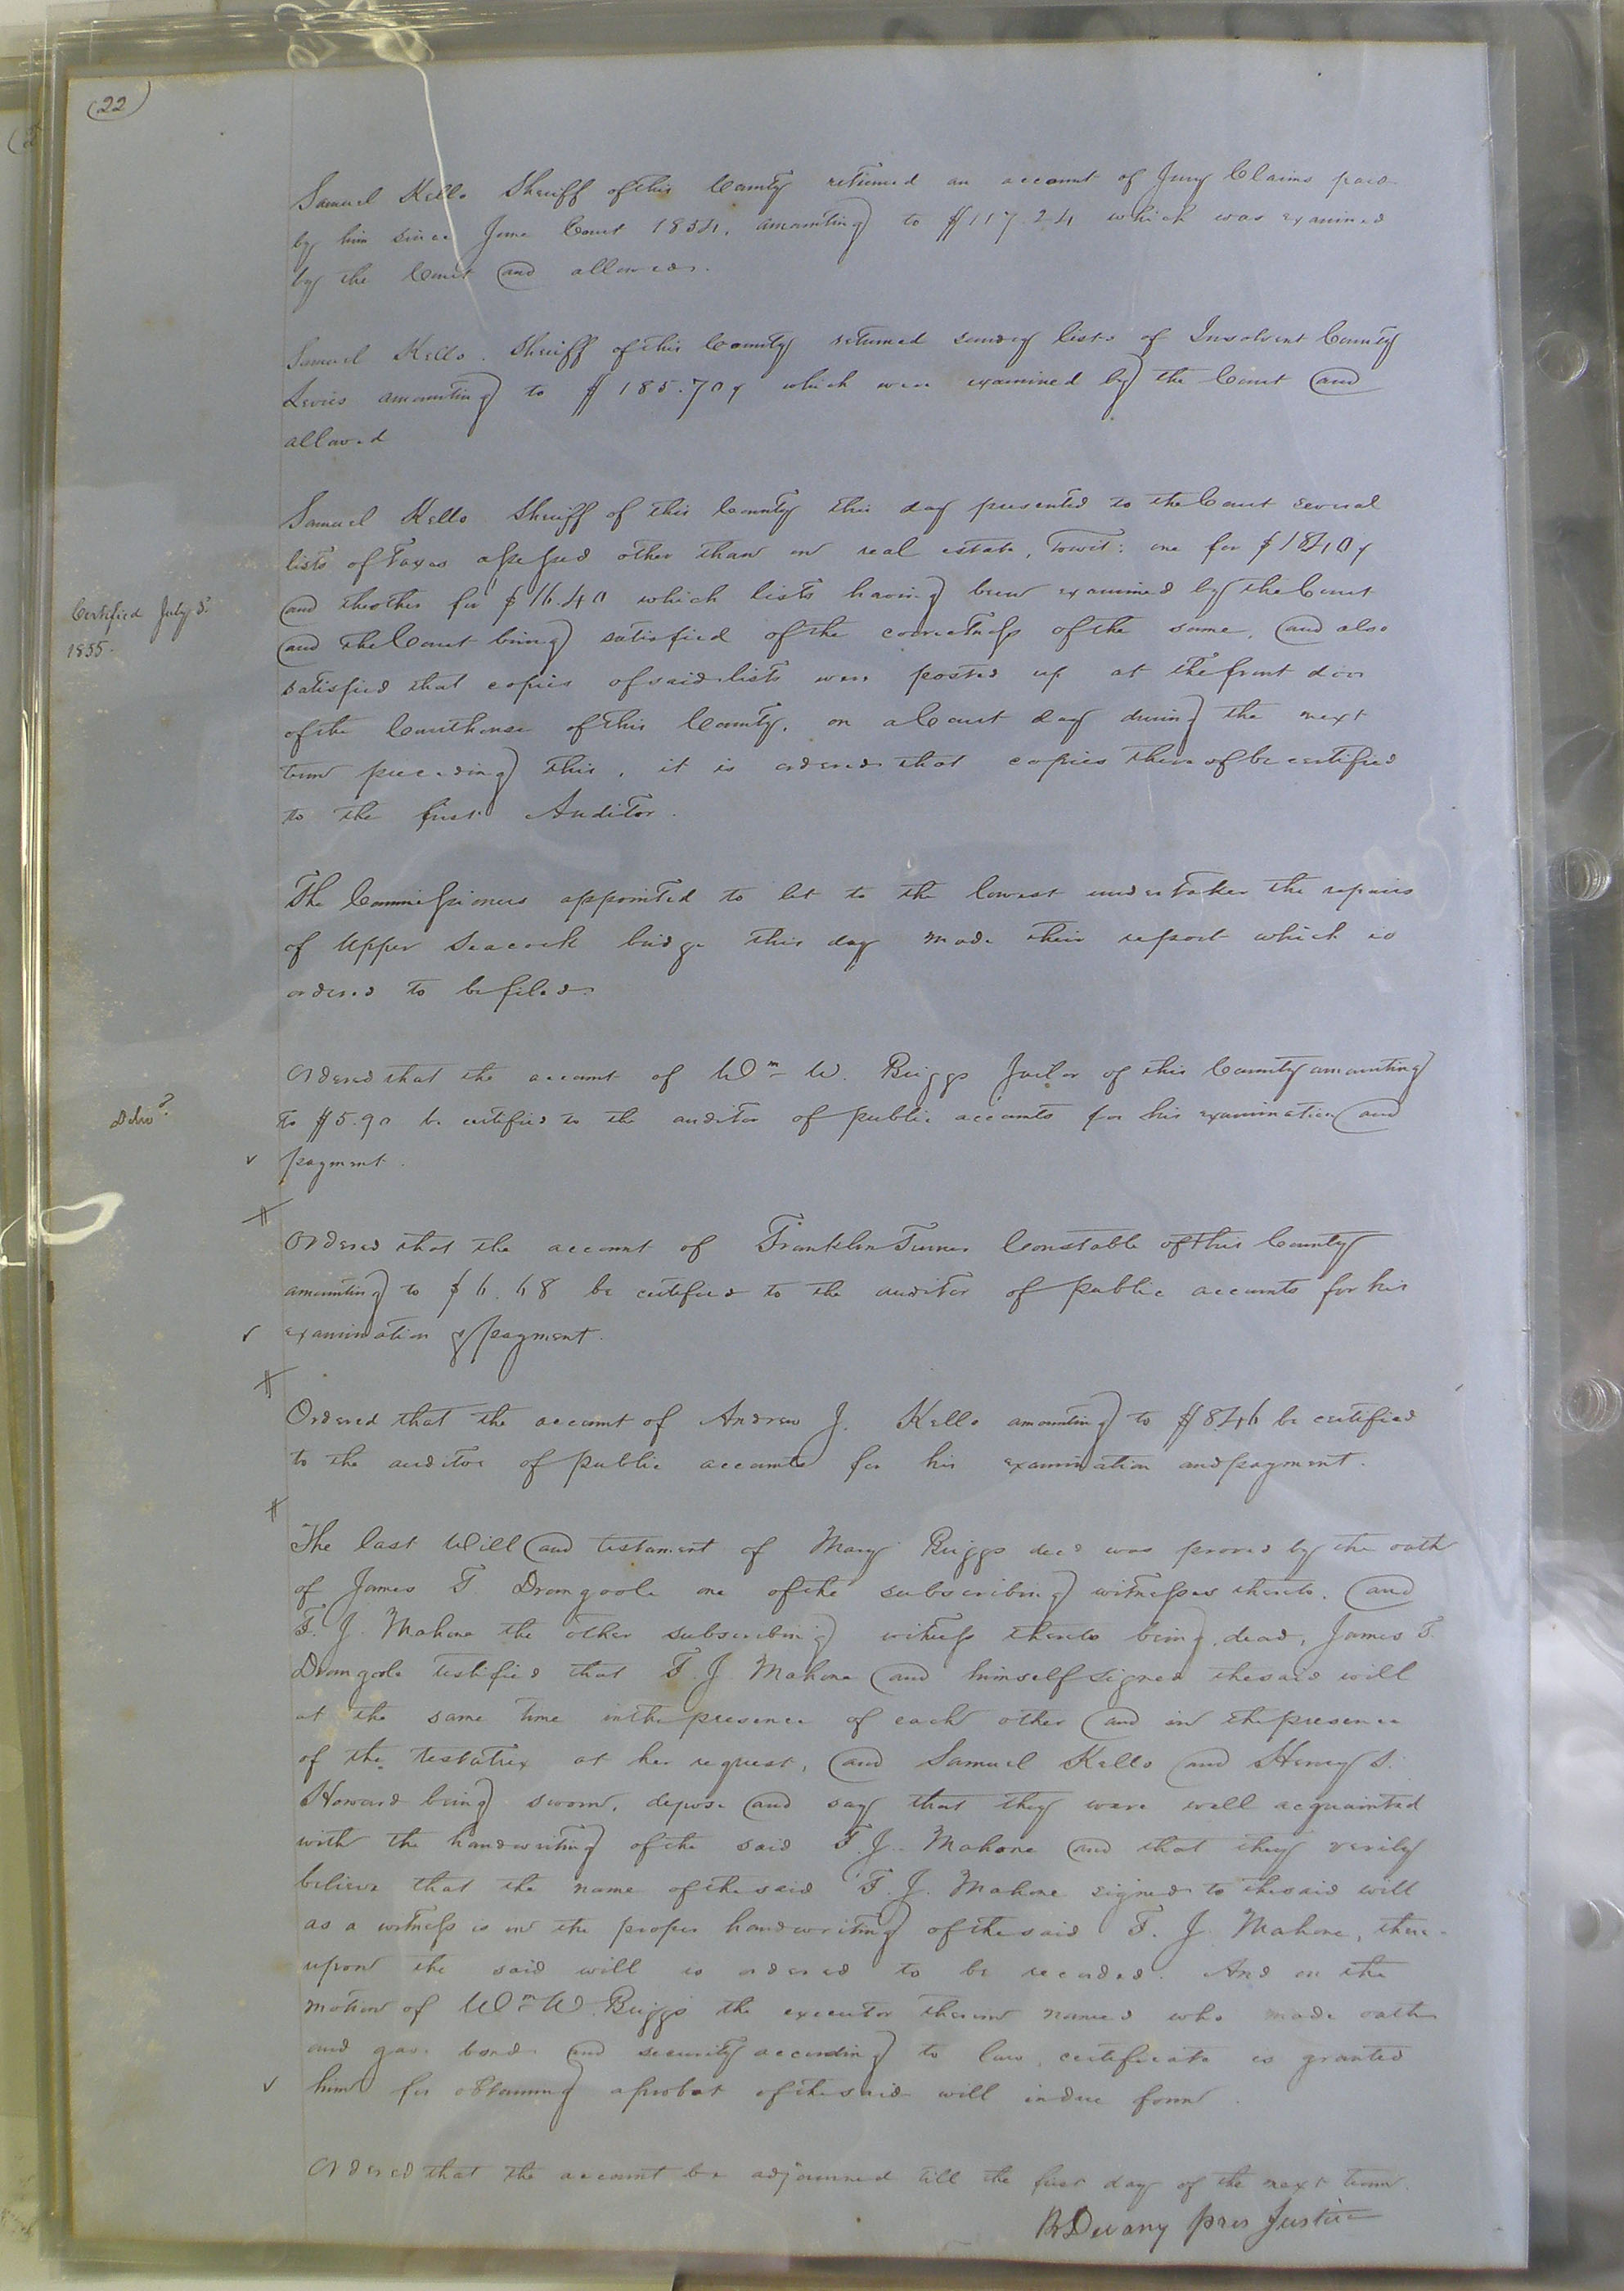 (22)
Samuel Kello Sheriff of this County returned an account of Jury Claims paid
by him since June Court 1854, amounting to $117.24 which was examined
by the Court and allowed.
Samuel Kello Sheriff of this County returned sundry lists of Insolvent County
Levies amounting to $185.70 which were examined by the Court and
allowed
Samuel Kello Sheriff of this County this day presented to the Court several
lists of Taxes assessed other than on real estate, Towit: one for
and the other for $16.40 which lists having been examined by the Court
Certified July 5.
1855.
and the Court being satisfied of the correctness of the same, and also
satisfied that copies of said lists were posted up at the front door
of the Courthouse of this County, on a Court day during the next
term preceeding this, it is ordered that copies thereof be certified
to the first Auditor.
The Commissioners appointed to let to the lowest undertaker the repairs
of Upper Seacock bridge this day made their report which is
ordered to be filed
Ordered that the account of Wm W. Briggs Jailor of this County amounting
to $5.90 be certified to the auditor of public accounts for his examination and
payment.
Ordered that the account of Franklin Turner Constable of this County
amounting to $6.68 be certified to the auditor of public accounts for his
examination & payment.
Ordered that the account of Andrew J. Kello amounting to $8.46 be certified
to the auditor of public accounts for his examination and payment.
The last Will and testament of Mary Briggs decd was proved by the oath
of James T. Dromgoole one of the subscribing witnesses thereto, and
T. J. Mahone the other subscribing witness thereto being dead, James T.
Dromgoole testified that T. J. Mahone and himself signed the said will
at the same time in the presence of each other and in the presence
of the testatrix at her request, and Samuel Kello and Henry S.
Howard being sworn, depose and say that they were well acquainted
with the handwriting of the said T. J. Mahone and that they verily
believe that the name of the said T. J. Mahone signed to the said will
as a witness is in the proper handwriting of the said T. J. Mahone, there-
upon the said will is ordered to be recorded. And on the
motion of Wm W. Briggs the executor therein named who made oath
and gave bond and security according to law, certificate is granted
him for obtaining a probat of the said will in due form.
Ordered that the account be adjourned till the first day of the next term.
Devany pres Justice